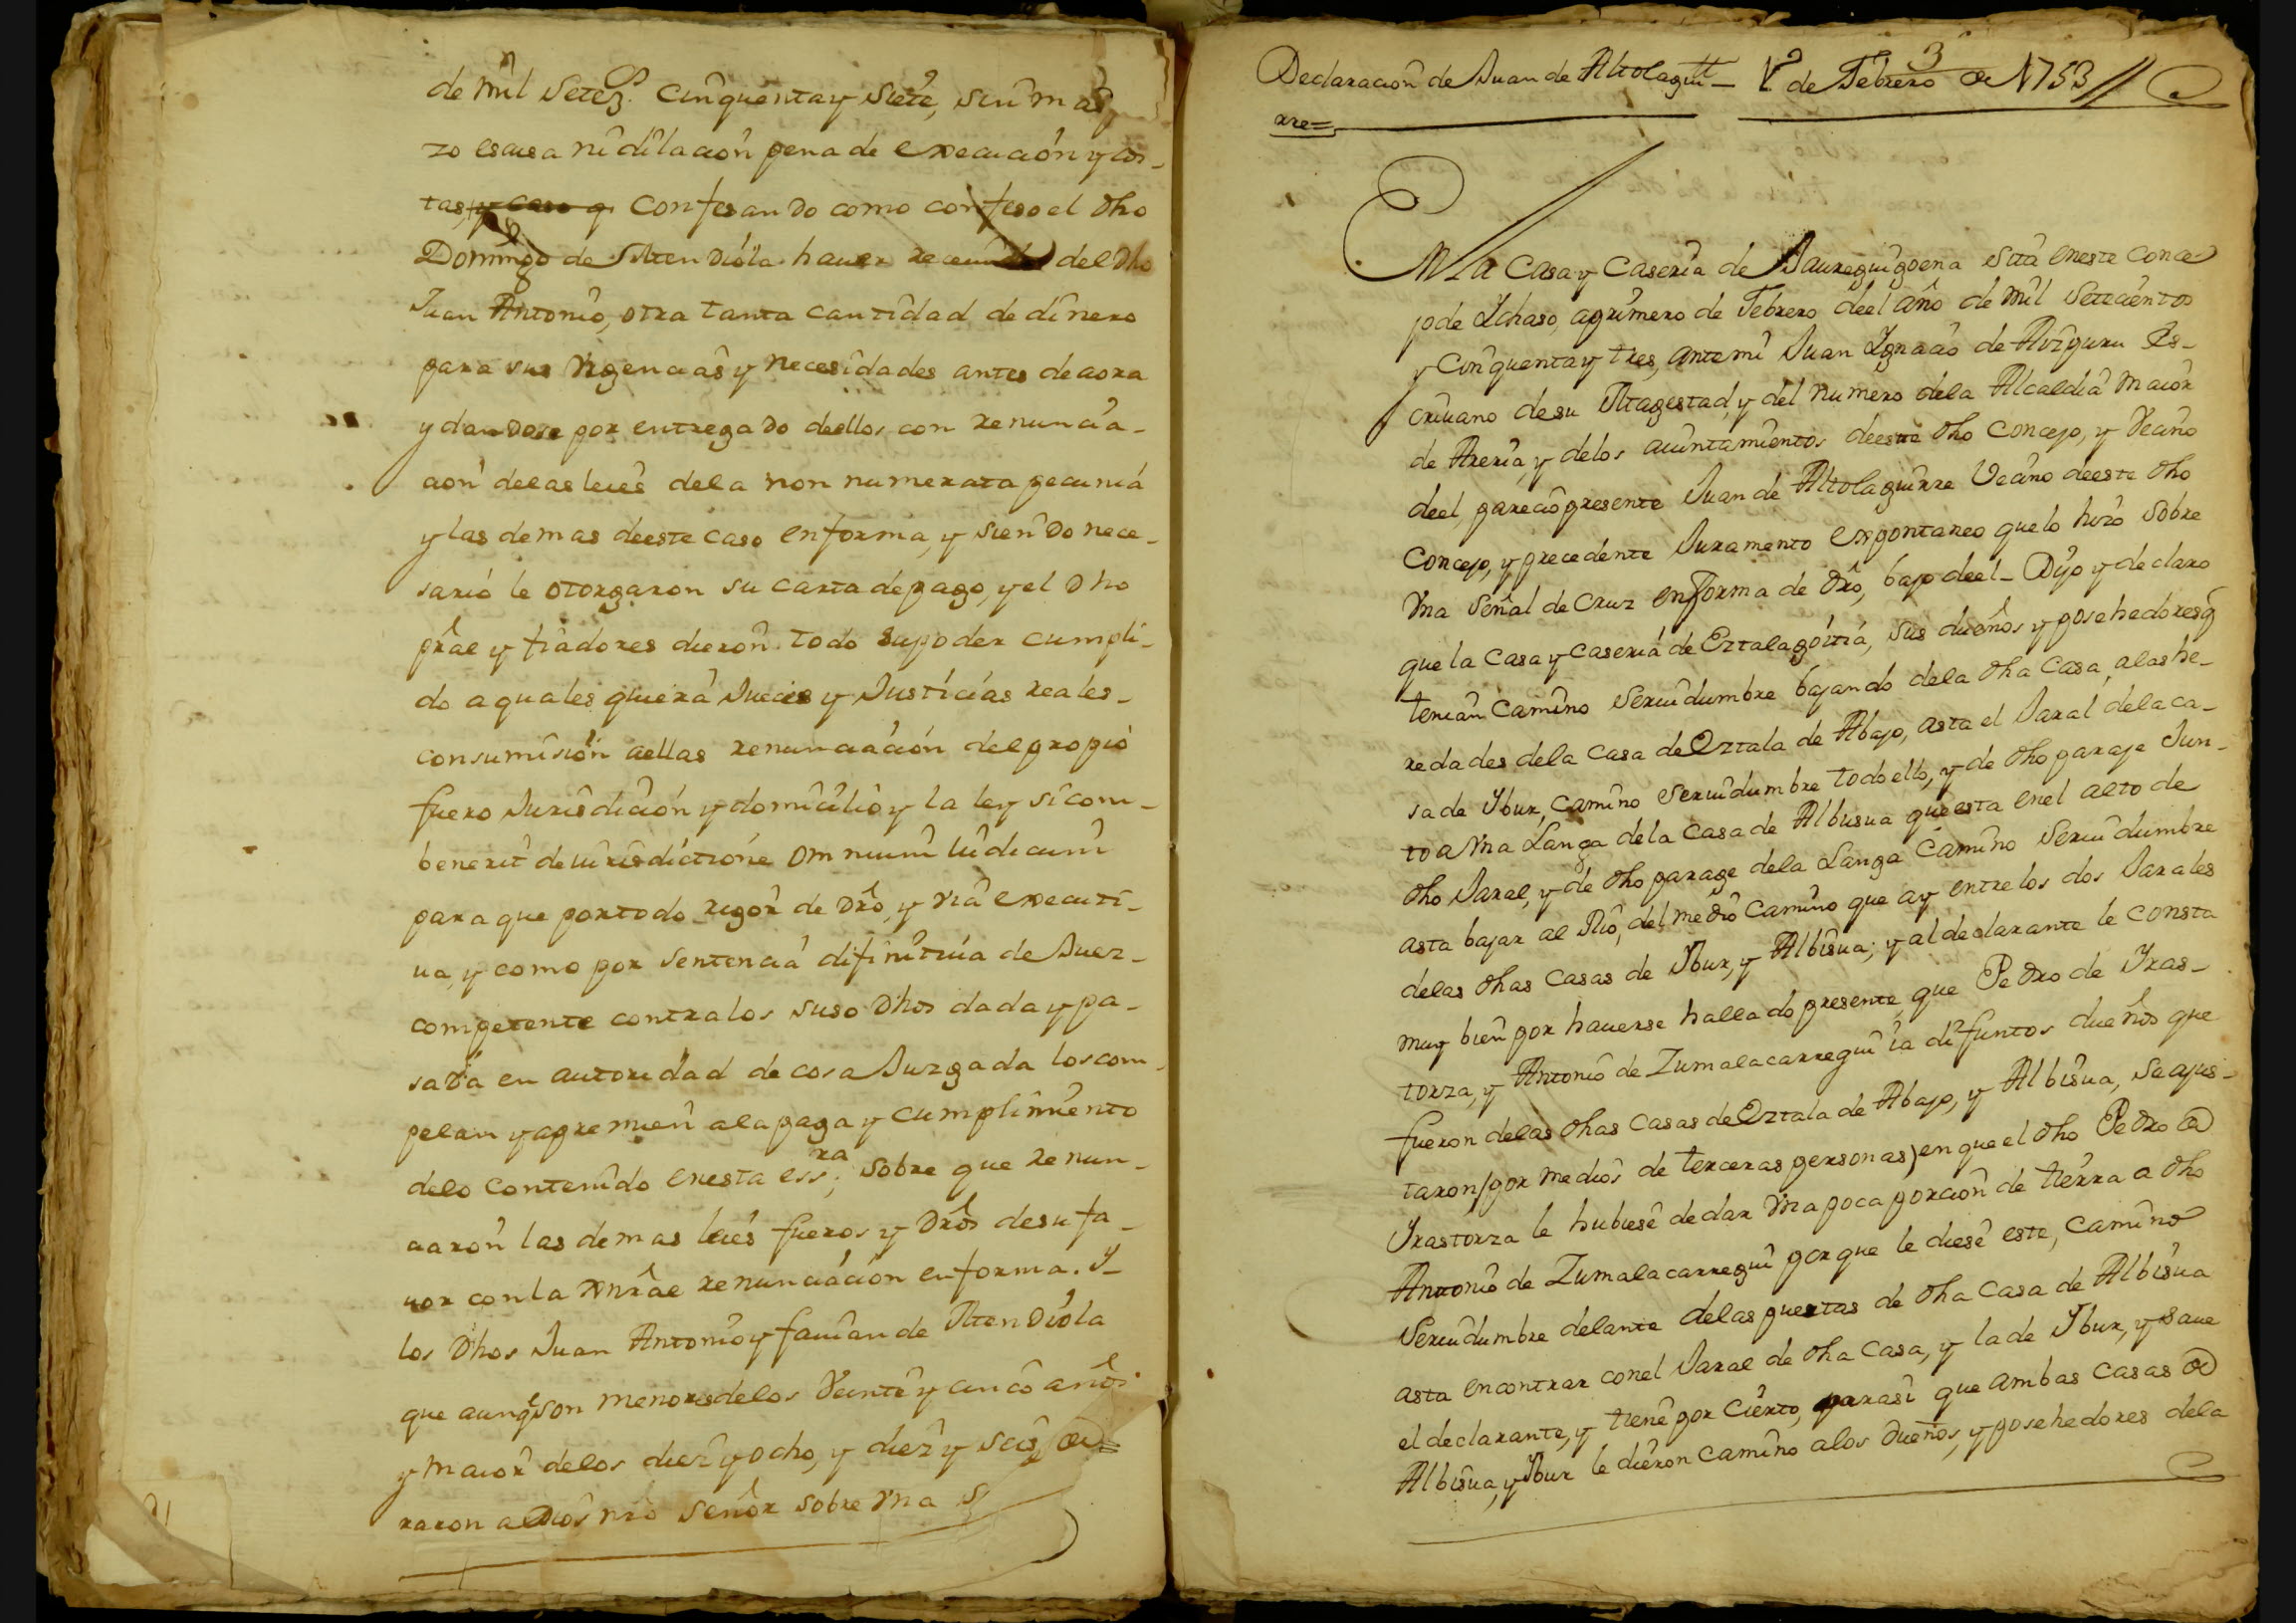 de mil Setez.s cinquenta y Siete, sin mas
zo escusa ni dilacion pena de execucion y cos_
tas, y caso q Confesando como confeso el dho
Domingo de Mendiola hauer receuido del dho
Juan Antonio, otra tanta cantidad de dinero
para sus Vrgencias y Necesidades antes de aora
y dandose por entregado dellos con renuncia_
cion de las leies de la non numerata pecunia
y las demas deeste caso en forma, y siendo nece_
sario le otorgaron su carta de pago, y el dho
pral y fiadores dieron todo su poder cumpli_
do a quales quiera Jueces y Justicias reales_
con sumision aellas renunciacion del propio
fuero Jurisdicion y domicilio y la ley si com_
benerit de iurisdictione omnium iudicum
para que por todo rigor de dro, y via executi_
ua, y como por sentencia difinitiua de Juez_
competente contra los suso dhos dada y pa_
sada en autoridad de cosa Juzgada los com_
pelan y apremien a la paga y cumplimiento
delo contenido en esta essra; sobre que renun_
ciaron las demas leies fueros y dros de su fa_
uor con la gnral renunciacion en forma. Y_
los dhos Juan Antonio y de Mendiola
que aunq son menores de los Veinte y cinco años
y maior de los diez y ocho, y diez y seis
raron a Dios nro Señor sobre Vna S
Declaracion de Juan de Altolagui_ 1º de Febrero de 1753 //
rre=
3
En la Casa y Caseria de Jaureguigoena sita en este Conce
jo de Ichaso, a primero de Febrero deel año de mil Setecientos
y Cinquenta y tres, ante mi Juan Ignacio de Aizpuru Es_
criuano de su Magestad, y del Numero de la Alcaldia Maior
de Areria, y de los aiuntamientos deeste dho Concejo, y Vecino
deel, parecio presente Juan de Altolaguirre Vecino deeste dho
Concejo, y precedente Juramento expontaneo que lo hizo sobre
Vna Señal de Cruz en forma de dro, bajo deel_ Dijo y declaro
que la Casa y Caseria de Eztalagoitia, sus dueños y posehedores q
tenian Camino Seruidumbre bajando de la dha Casa, a las he_
redades de la Casa de Eztala de Abajo, asta el Jaral de la ca_
sa de Ybur, camino seruidumbre todo ello, y de dho paraje Jun_
to a Vna Langa de la Casa de Albisua que esta en el alto de
dho Jaral, y de dho parage de la Langa Camino Seruidumbre
asta bajar al Rio, del medio Camino que ay entre los dos Jarales
de las dhas Casas de Ybur, y Albisua; y al declarante le consta
muy bien por hauerse hallado presente, que Pedro de Yras_
torza, y Antonio de Zumalacarregui ia difuntos dueños que
fueron de las dhas Casas de Eztala de Abajo, y Albisua, se ajus_
taron (por medios de terceras personas) en que el dho Pedro de
Yrastorza le hubiese de dar Vna poca porcion de tierra a dho
Antonio de Zumalacarregui porque le diese este, camino
Seruidumbre delante de las puertas de dha Casa de Albisua
asta encontrar con el Jaral de dha Casa, y la de Ybur, y saue
el declarante, y tiene por Cierto, para si que ambas Casas de
Albisua, y Ybur le dieron camino a los dueños, y posehedores de la